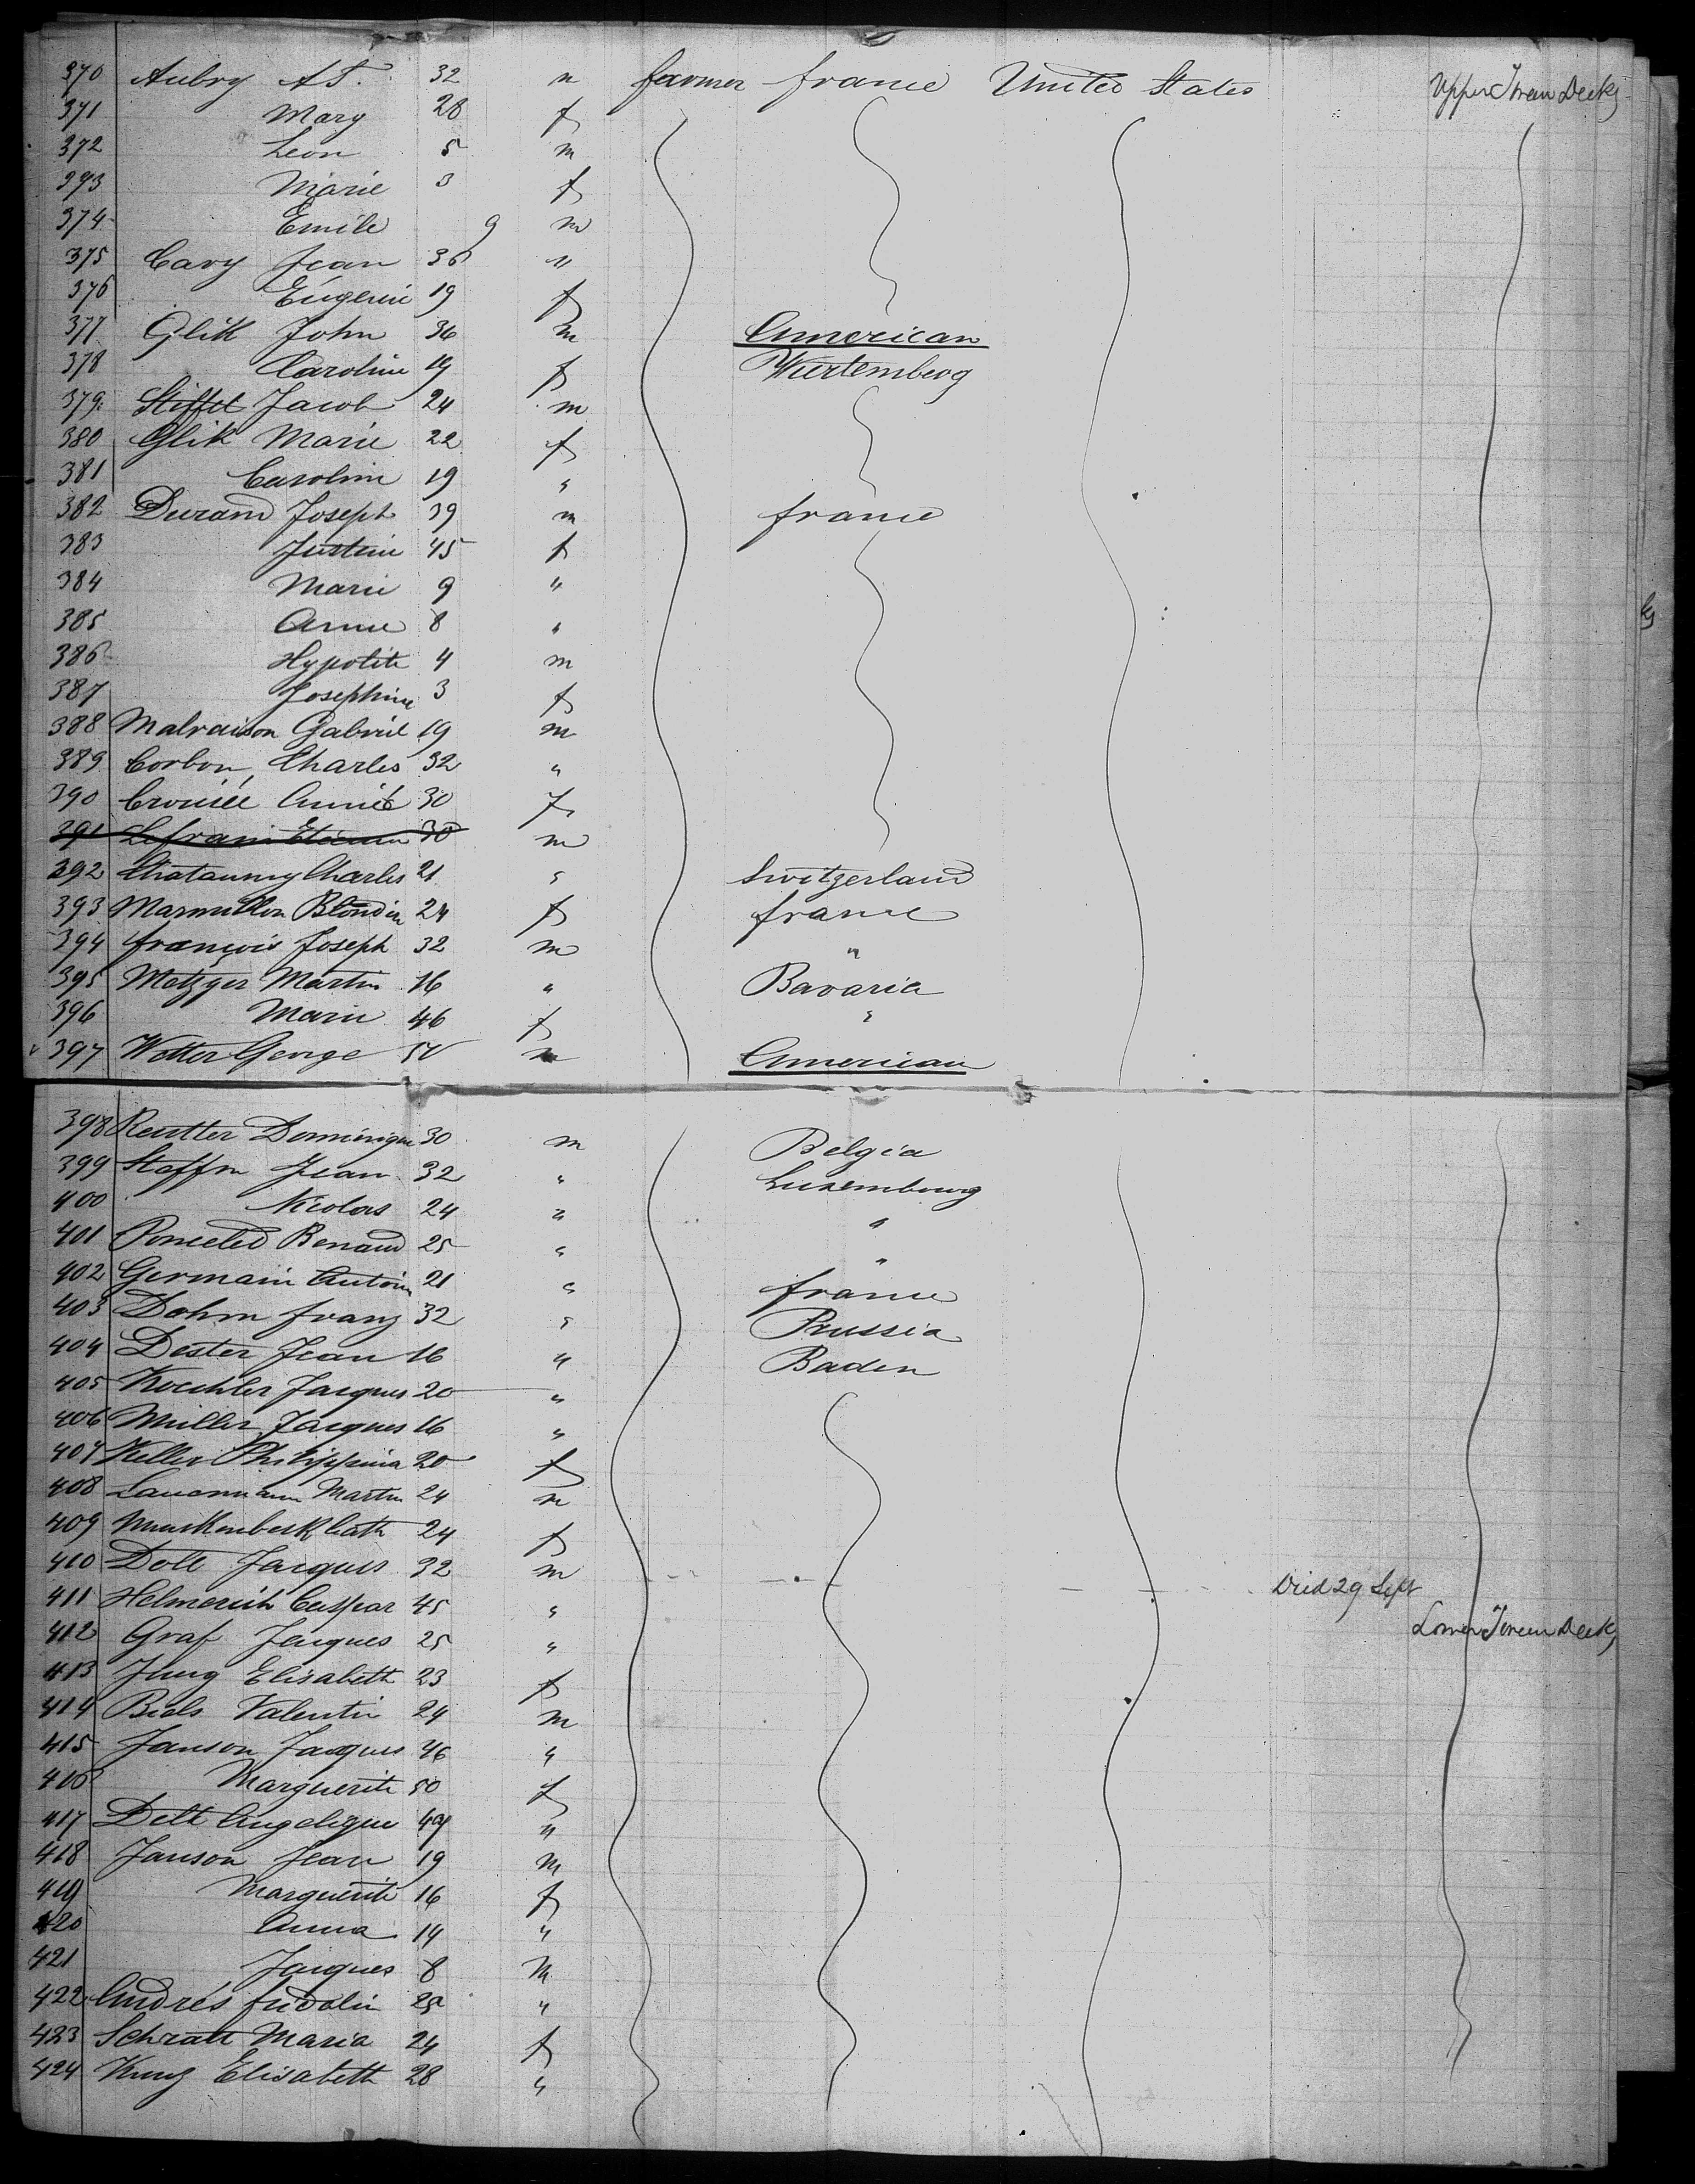 370 Aubry A T. 32 m farmer france United States Upper Tween Decks
371 Mary 28 f
372 Leon 5 m
373 Marie 3 f
374 Emile 9 m
375 Cavy Jean 36 "
376 Eugenie 19 f
377 Glik John 36 m American
378 Caroline 19 f Wurtemberg
379 Stiffel Jacob 24 m
380 Glik Marie 22 f
381 Carolin 19 "
382 Durand Joseph 39 m france
383 Justine 45 f
384 Marie 9 "
385 Anne 8 "
386 Hypolite 4 m
387 Josephine 3 f
388 Malvaison Gabriel 19 m
389 Corbon Charles 32 "
390 Crouiée Annie 30 f
391 30 m
392 Charles 21 " Switzerland
393 Marmillon Blondin 24 f france
394 françois Joseph 32 m "
395 Metzger Martin 16 " Bavaria
396 Marie 46 f "
397 Wetter George m American
398 Reutter Dominique 30 m Belgia
399 Steffen Jean 32 " Luxembourg
400 Nicolas 24 " "
401 Ponceled Renaud 25 " "
402 Germain Antoine 21 " france
403 Dohm franz 32 " Prussia
404 Dester Jean 16 " Baden
405 Koechler Jacques 20 "
406 Muller Jacques 16 "
407 Keller Philippina 20 f
408 Martin 24 m
409 Cath 24 f
410 Doll Jacques 32 m
411 Helmerich Caspar 45 " Died 29 Sept
412 Graf Jacques 25 " Lower Tween Decks
413 Jung Elisabeth 23 f
414 Biels Valentin 24 m
415 Janson Jacques 46 "
416 Marguerite 50 f
417 Dell Angelique 49 "
418 Janson Jean 19 m
419 Marguerite 16 f
420 Anna 14 "
421 Jacques 8 m
422 Andrés fridolin "
423 Schratt Maria 24 f
424 Kung Elisabeth 28 "